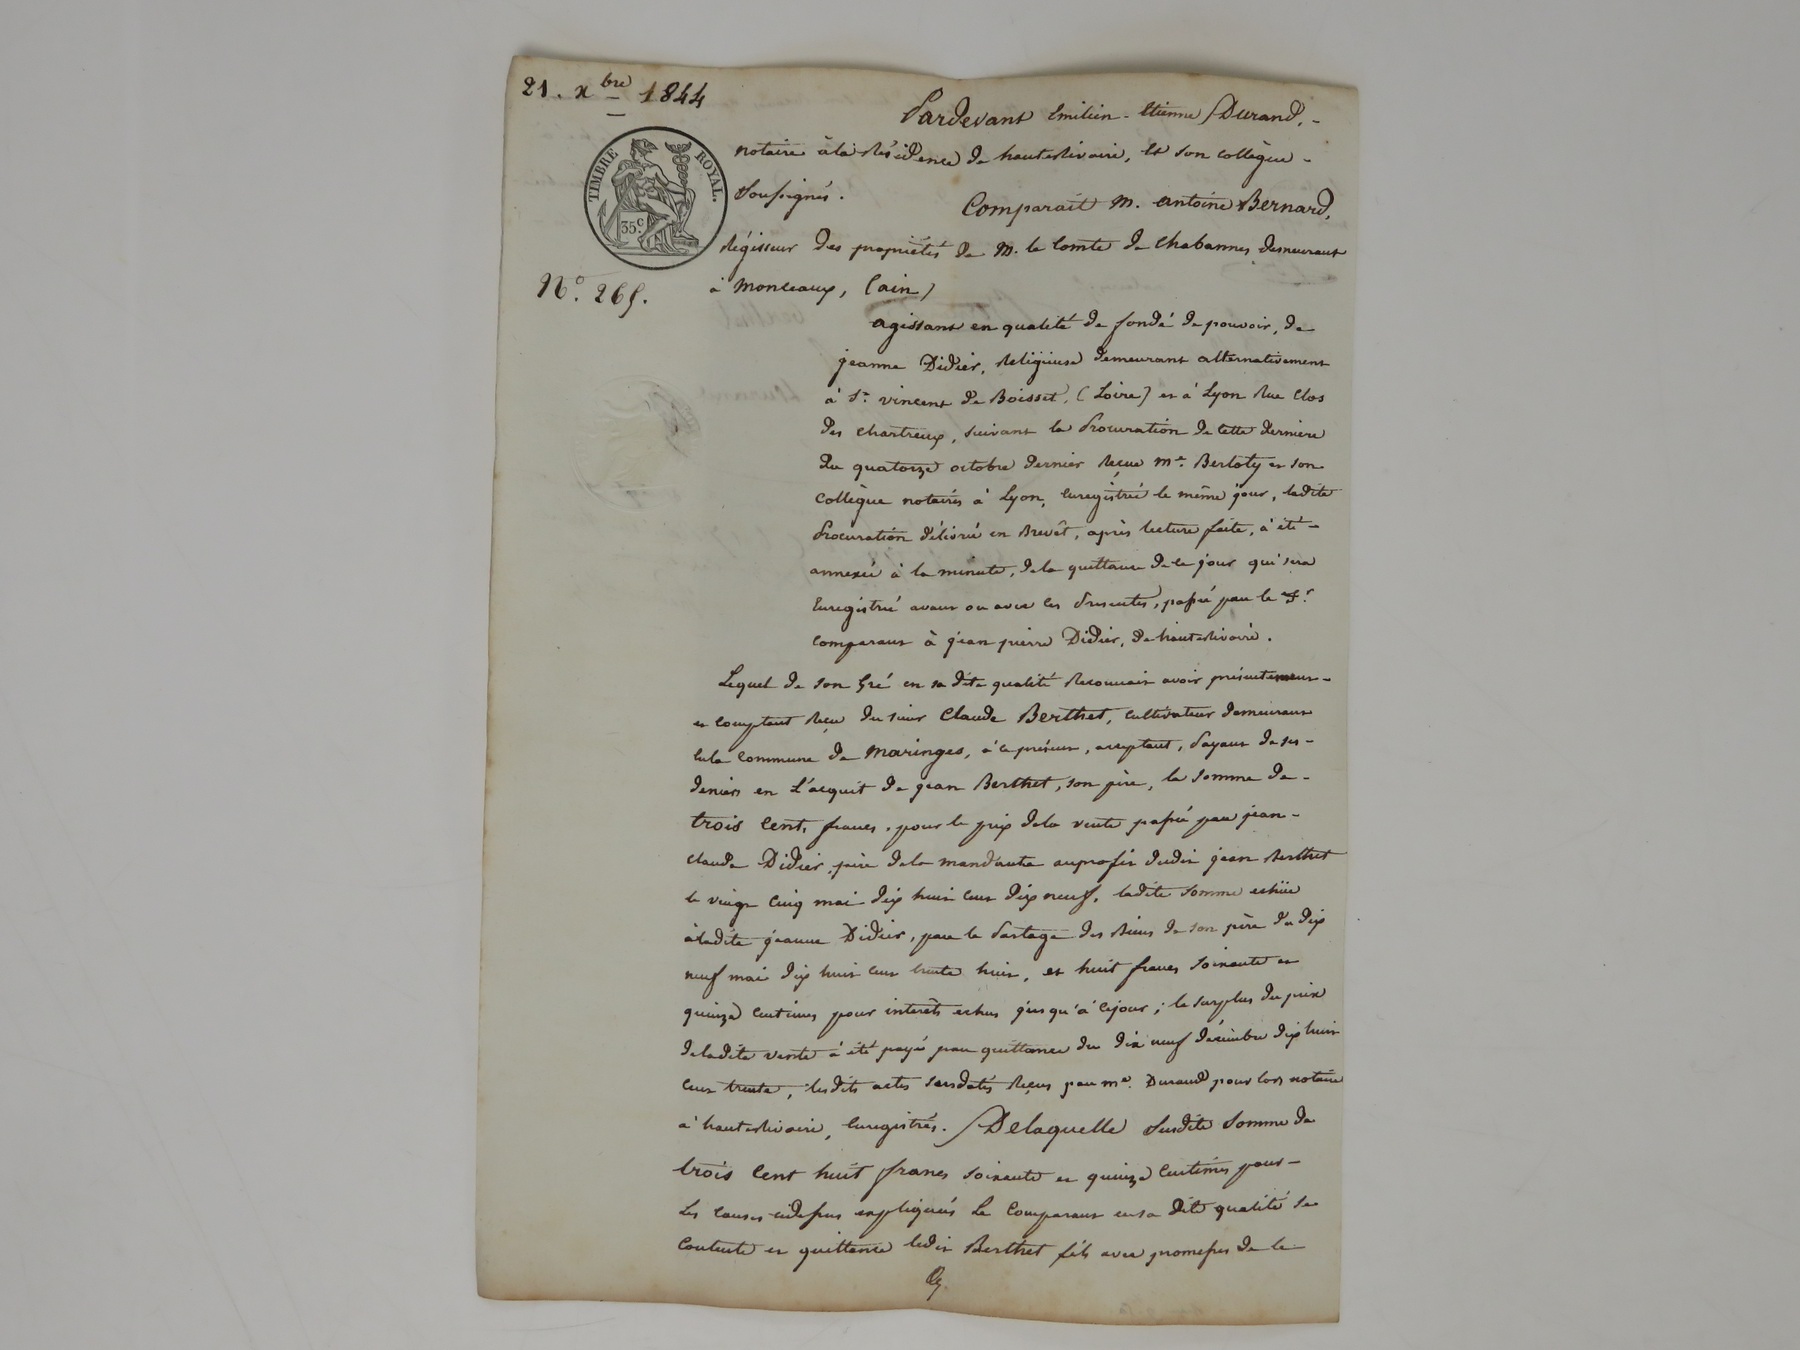 21. xbre 1844
Pardevant Emilien-Etienne Durand,
TIMBRE ROYAL.
35c.
notaire à la Résidence de hauterivoire, et son collègue
soussignés.
Comparait M. Antoine Bernard,
Régisseur des propriétés de M. le Comte de Chabannes, demeurant
No. 265.
à Monceaux, (ain)
agissant en qualité de fondé de pouvoir, de
jeanne Didier, Religieuse demeurant alternativement
à St. vincent de Boisset, (Loire) et à Lyon Rue Clos
des Chartreux, suivant la Procuration de cette dernière
du quatorze octobre dernier reçue Me. Berloty et son
Collègue notaires à Lyon, enregistrée le même jour, ladite
Procuration délivrée en Brevêt, après lecture faite, à été
annexée à la minute, de la quittance de ce jour qui sera
Enregistrée avant ou avec les présentes, passée par le Sr.
comparant à jean pierre Didier, de hauterivoire.
Lequel de son Gré en sa dite qualité Reconnait avoir présentement
et comptant Reçu du sieur Claude Berthet, cultivateur demeurant
en la commune de Maringes, à ce présent, acceptant, Payant de ses
deniers en L'acquit de jean Berthet, son père, la somme de
trois cents francs, pour le prix de la vente passée par jean
Claude Didier, père de la mandante au profit dudit jean Berthet
le vingt cinq mai dix huit cent dix neuf, ladite somme echüe
à ladite jeanne Didier, par le Partage des Biens de son père du dix
neuf mai dix huit cent trente huit, et huit francs soixante et
quinze centimes pour interêts echus jusqu'à cejour; le surplus du prix
de ladite vente à été payé par quittance du dix neuf décembre dix huit
cent trente, lesdits actes susdatés Reçus par me. Durand pour lors notaire
à hauterivoire, enregistrés. De laquelle susdite somme de
trois cent huit francs soixante et quinze centimes pour
Les causes cidessus expliquées Le Comparant en sa dite qualité se
contente et quittance ledit Berthet fils avec promesses de le